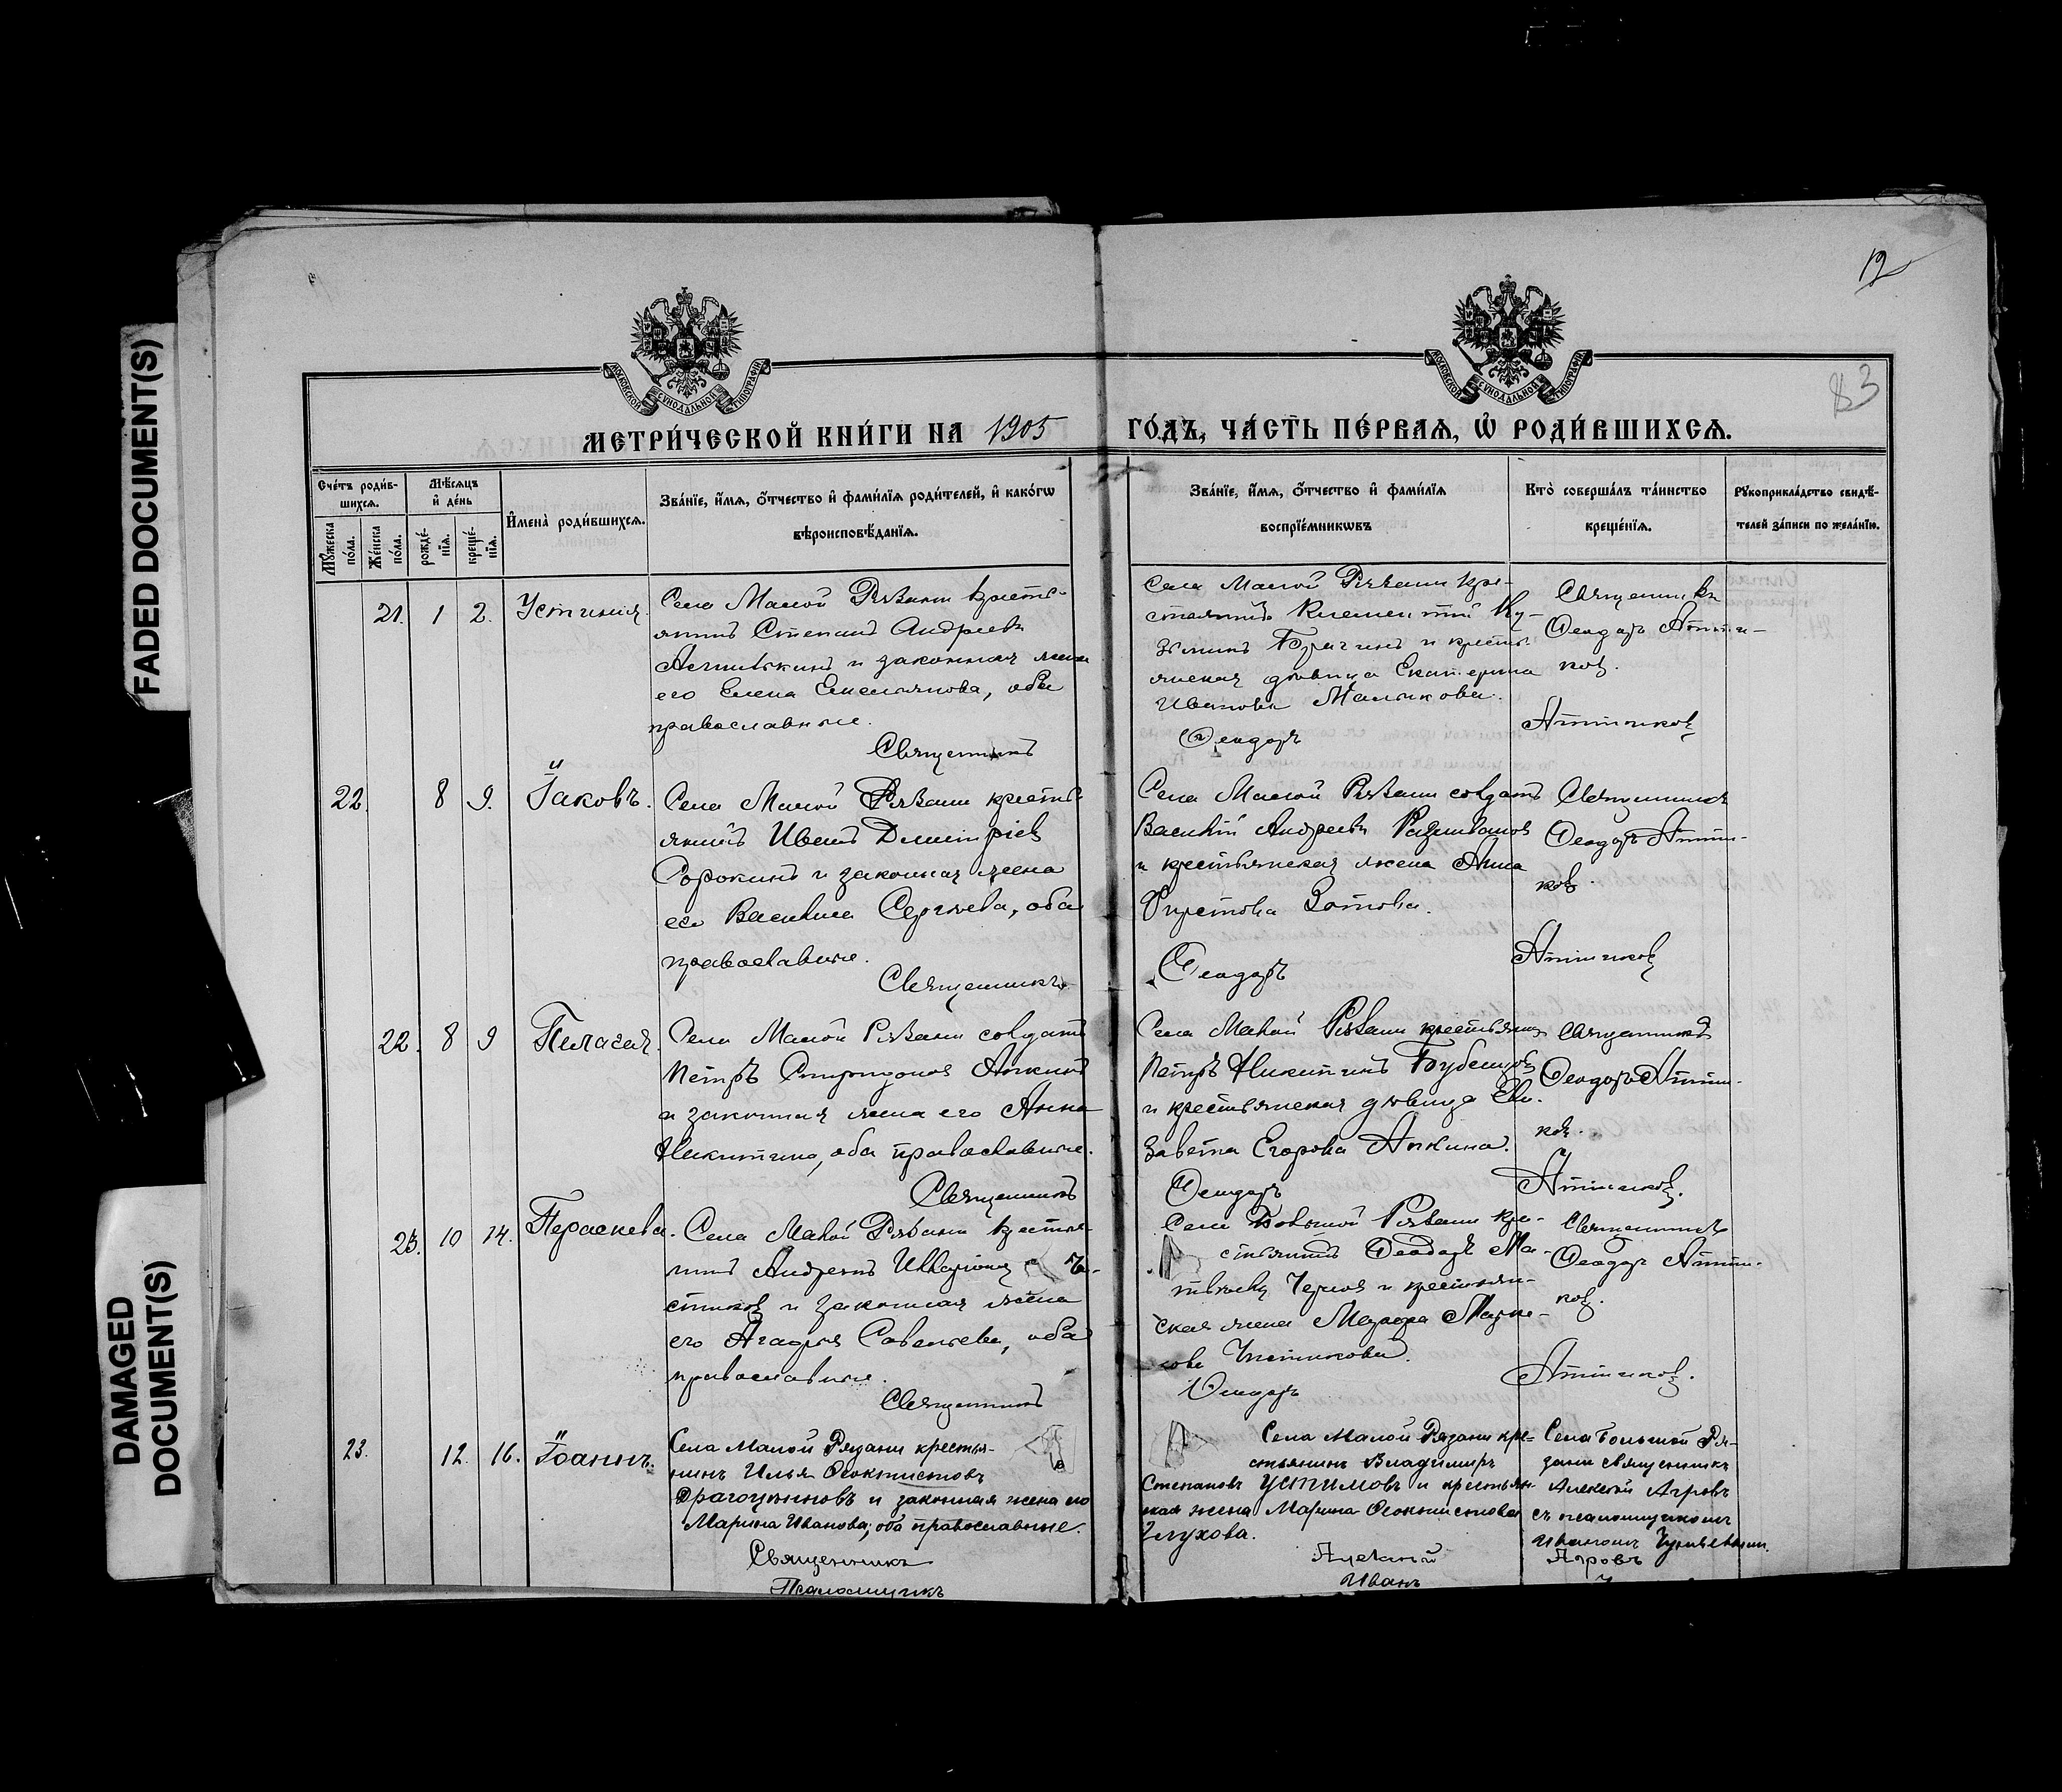 12
83
FADED DOCUMENT(S)
DAMAGED
DOCUMENT(S)
МОСКОВСКОЙ СУНОДАЛЬНОЙ ТИПОГРАФІИ
МОСКОВСКОЙ СУНОДАЛЬНОЙ ТИПОГРАФІИ
МЕТРИ́ЧЕСКОЙ КНИ́ГИ НА 1905 ГО́ДЪ, ЧА́СТЬ ПЕ́РВАѦ, Ѡ҆ РОДИ́ВШИХСѦ.
Сче́тъ роди́в-
шихсѧ.
Мꙋ́жеска
по́ла.
Же́нска
по́ла.
Мѣ́сѧцъ
и҆ де́нь
рожде́-
нїѧ.
креще́-
нїѧ.
И҆мена̀ роди́вшихсѧ.
Зва́нїе, и҆́мѧ, ѻ҆́тчество и҆ фами́лїѧ роди́телей, и҆ како́гѡ
вѣроисповѣ́данїѧ.
Зва́нїе, и҆́мѧ, ѻ҆́тчество и҆ фами́лїѧ
воспрїе́мникѡвъ
Кто̀ соверша́лъ та́инство
креще́нїѧ.
Рꙋкоприкла́дство свидѣ́-
телей за́писи по жела́нїю.
21. 1 2. Устинія.
Села Малой Рязани кресть-
янинъ Степанъ Андреевъ
и законная жена
его Елена Емельянова, оба
православные.
Священникъ
Села Малой Рязани кре-
стьянинъ Климентій Ку-
зьминъ и кресть-
янская дѣвица Екатерина
Иванова Малыкова.
Ѳеодоръ
Священникъ
Ѳеодоръ Аттни-
ковъ.
Аттниковъ
22. 8 9. Іаковъ.
Села Малой Рязани кресть-
янинъ Иванъ Димитріевъ
Сорокинъ и законная жена
его Василиса Сергѣева, оба
православные.
Священникъ
Села Малой Рязани солдатъ
Василій Андреевъ
и крестьянская жена Анна
Зотова.
Ѳеодоръ
Священникъ
Ѳеодоръ Аттни-
ковъ.
Аттниковъ
22. 8 9 Пелагея.
Села Малой Рязани солдатъ
Петръ Спиридоновъ Аникинъ
и законная жена его Анна
Никитина, оба православные.
Священникъ
Села Малой Рязани крестьянинъ
Петръ Никитинъ Бубенцовъ
и крестьянская дѣвица Ели-
завета Егорова Аникина.
Ѳеодоръ
Священникъ
Ѳеодоръ Аттни-
ковъ.
Аттниковъ.
23. 10 14. Параскева.
Села Малой Рязани крестья-
нинъ Андрей Иларіоновъ Чи-
стиковъ и законная жена
его Агафья Савельева, оба
православные.
Священникъ
Села Большой Рязани кре-
стьянинъ Ѳеодоръ Ма-
твѣевъ Черновъ и крестьян-
ская жена
Чистикова.
Ѳеодоръ
Священникъ
Ѳеодоръ Аттни-
ковъ.
Аттниковъ.
23. 12. 16. Іоаннъ.
Села Малой Рязани крестья-
нинъ Илья Ѳеоктистовъ
Драгоцѣнновъ и законная жена его
Марина Иванова; оба православные.
Священникъ
Псаломщикъ
Села Малой Рязани кре-
стьянинъ Владимиръ
Степановъ Устимовъ и крестьян-
ская жена Марина Ѳеоктистова
Глухова.
Алексій
Иванъ
Села Большой Ря-
зани священникъ
Алексій Агровъ
съ псаломщикомъ
Иваномъ
Агровъ